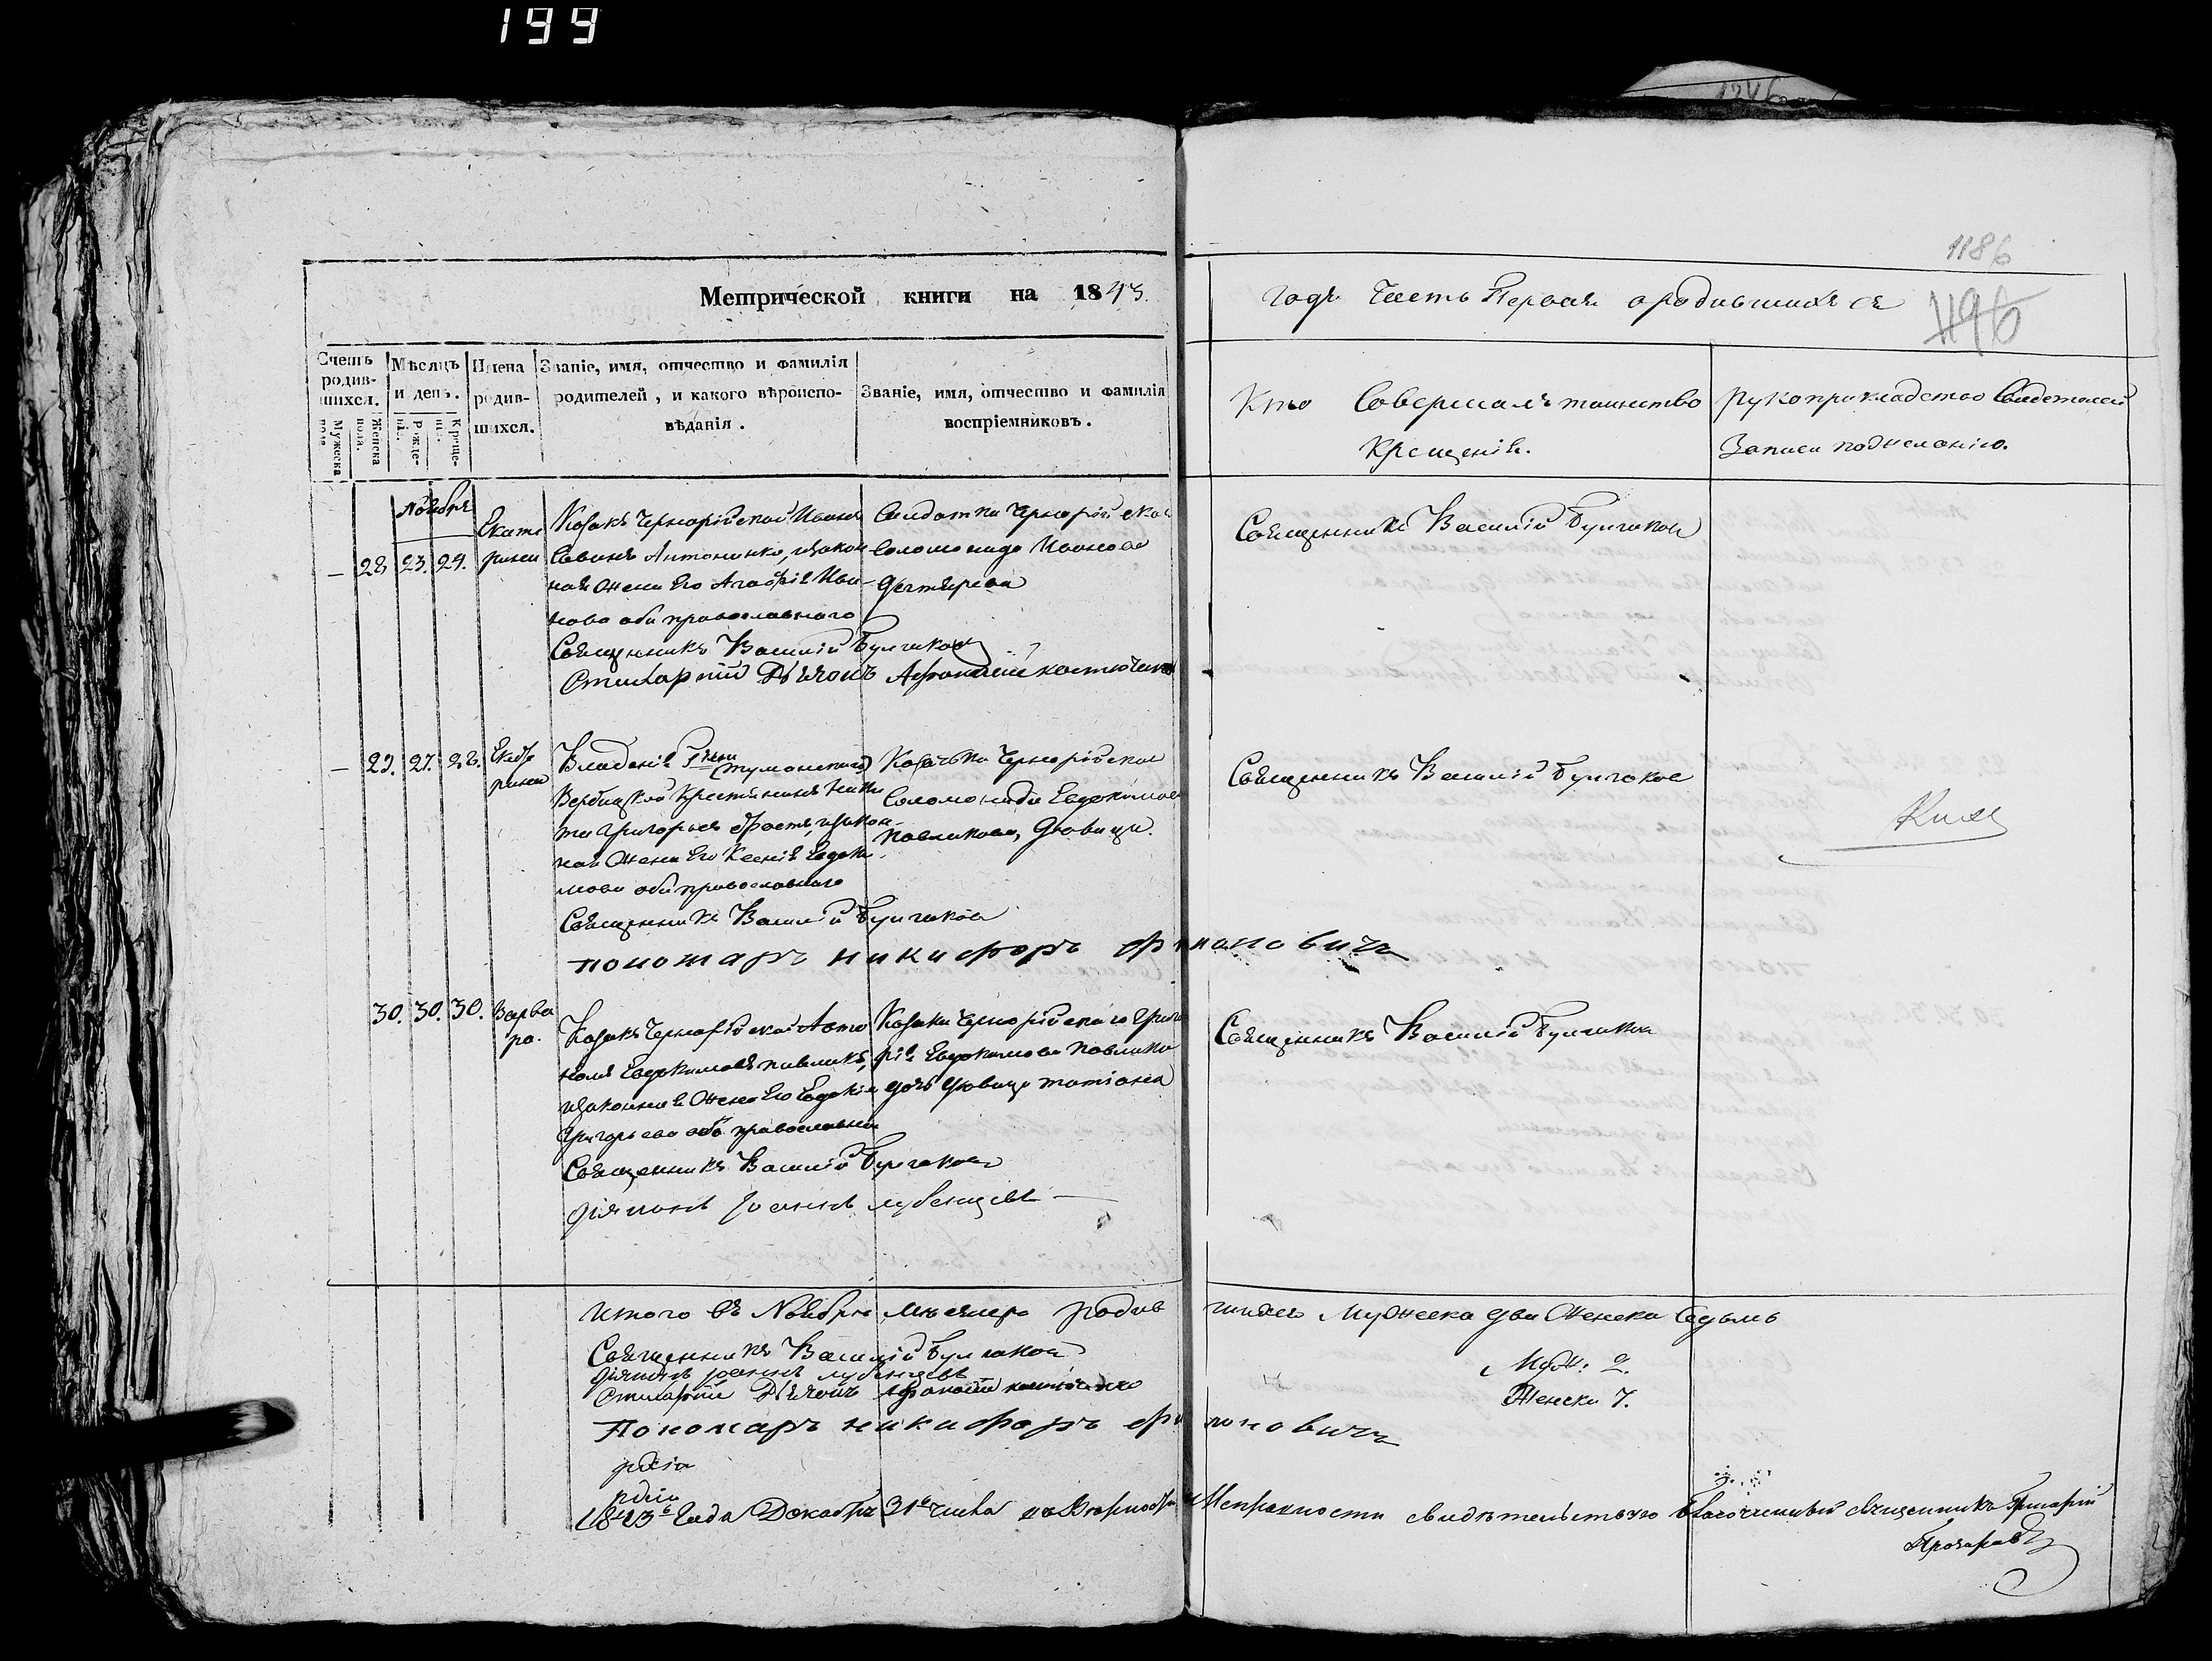 199
1186
1196
Метрической книги на 1843.
годъ Часть Первая о родившихъся
Счетъ родив- шихся.
Мужеска пола.
Женска пола.
Мѣсяцъ и день.
Рожде- нія.
Креще- нія.
Имена родив- шихся.
Званіе, имя, отчество и фамилія
родителей, и какого вѣроиспо-
вѣданія.
Званіе, имя, отчество и фамилія
воспріемниковъ.
Кто Совершалъ таинство
Крещенія.
Рукоприкладство Свидетелей
Записи по желанію.
Ноября
— 28. 23. 24.
Екате
рина
Козакъ Чернорійской Иванъ
Савинъ Антоненко, изакон
ная жена Его Агафія Ива-
нова оба православнаго
Священникъ Василій Булгаков
Стихарный Дьячокъ Афанасий костюченко
Солдатка Чернорійская
Соломонида Иванова
Дегтярева
Священникъ Василій Булгаков
— 29. 27. 28.
Екате
рина
Владенія Туманскаго
Вербицкой Крестьянинъ Ники
та Григорьев изакон-
ная жена Его Ксенія Евдоки-
мова оба православнаго
Священникъ Василій Булгаков
пономарь никифоръ филоновичъ
Козачька Чернорійская
Соломонида Евдокимова
Павликова, Девица.
Священникъ Василій Булгаков
30. 30. 30.
Варва
ра.
Козакъ Чернорійской Анто
нъ Евдокимовъ павликъ,
изаконная жена Его Евдокія
Григорьева оба православна
Священникъ Василій Булгаков
Діяконъ Іоаннъ лубенцевъ
Козака Чернорійскаго Григо
рія Евдокимова Павлика
дочь Девица татіана
Священникъ Василій Булгаков
Итого въ Ноябрѣ месяце родившихся Мужеска два Женска Седьмь
Муж: 2.
Женска 7.
Священникъ Василій Булгаков
Діяконъ іоаннъ лубенцевъ
Стихарный Дьячокъ Афанасий костюченко
Пономарь никифоръ филоновичъ
1843 года Декабря 31 числа свидѣтельствую Благочинный священникъ Григорій